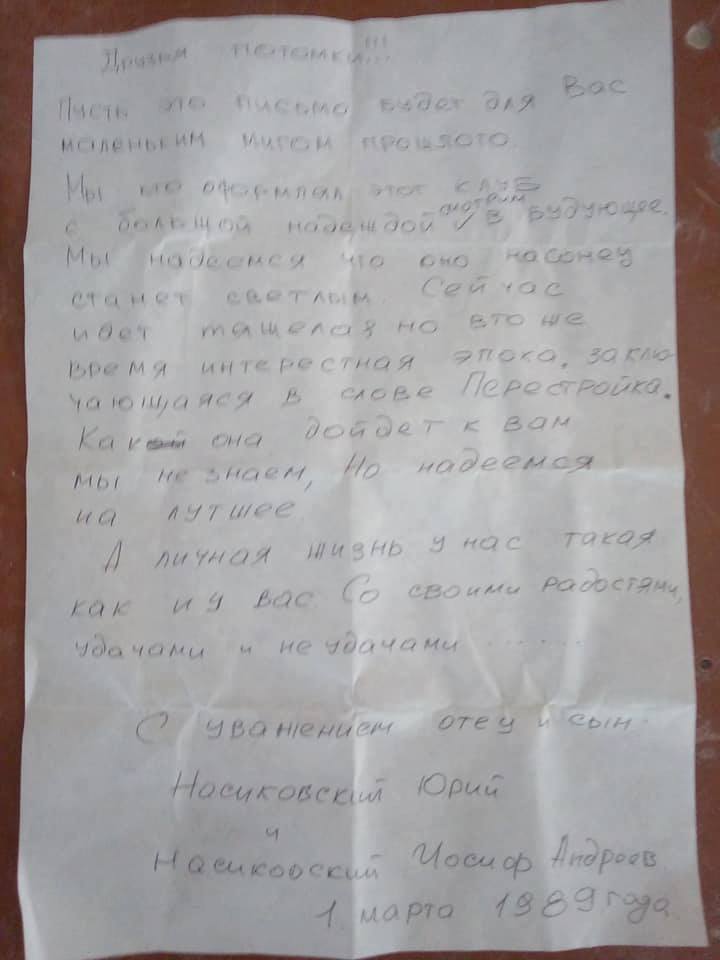 Друзья потомки!!!
Пусть это письмо будет для Вас
маленьким мигом прошлого.
Мы кто оформлял этот клуб
с большой надеждой смотрим в будующее.
Мы надеемся что оно наконец
станет светлым. Сейчас
идет тяжелая но вто же
время интерестная эпока, заклю-
чающаяся в слове Перестройка.
Как она дойдет к вам
мы не знаем, Но надеемся
на лутшее
А личная жизнь у нас такая
как и у вас. Со своими радостями,
удачами и не удачами .......
С уважением отец и сын.
Насиковский Юрий
и
Насиковский Иосиф Андреев
1 марта 1989 года